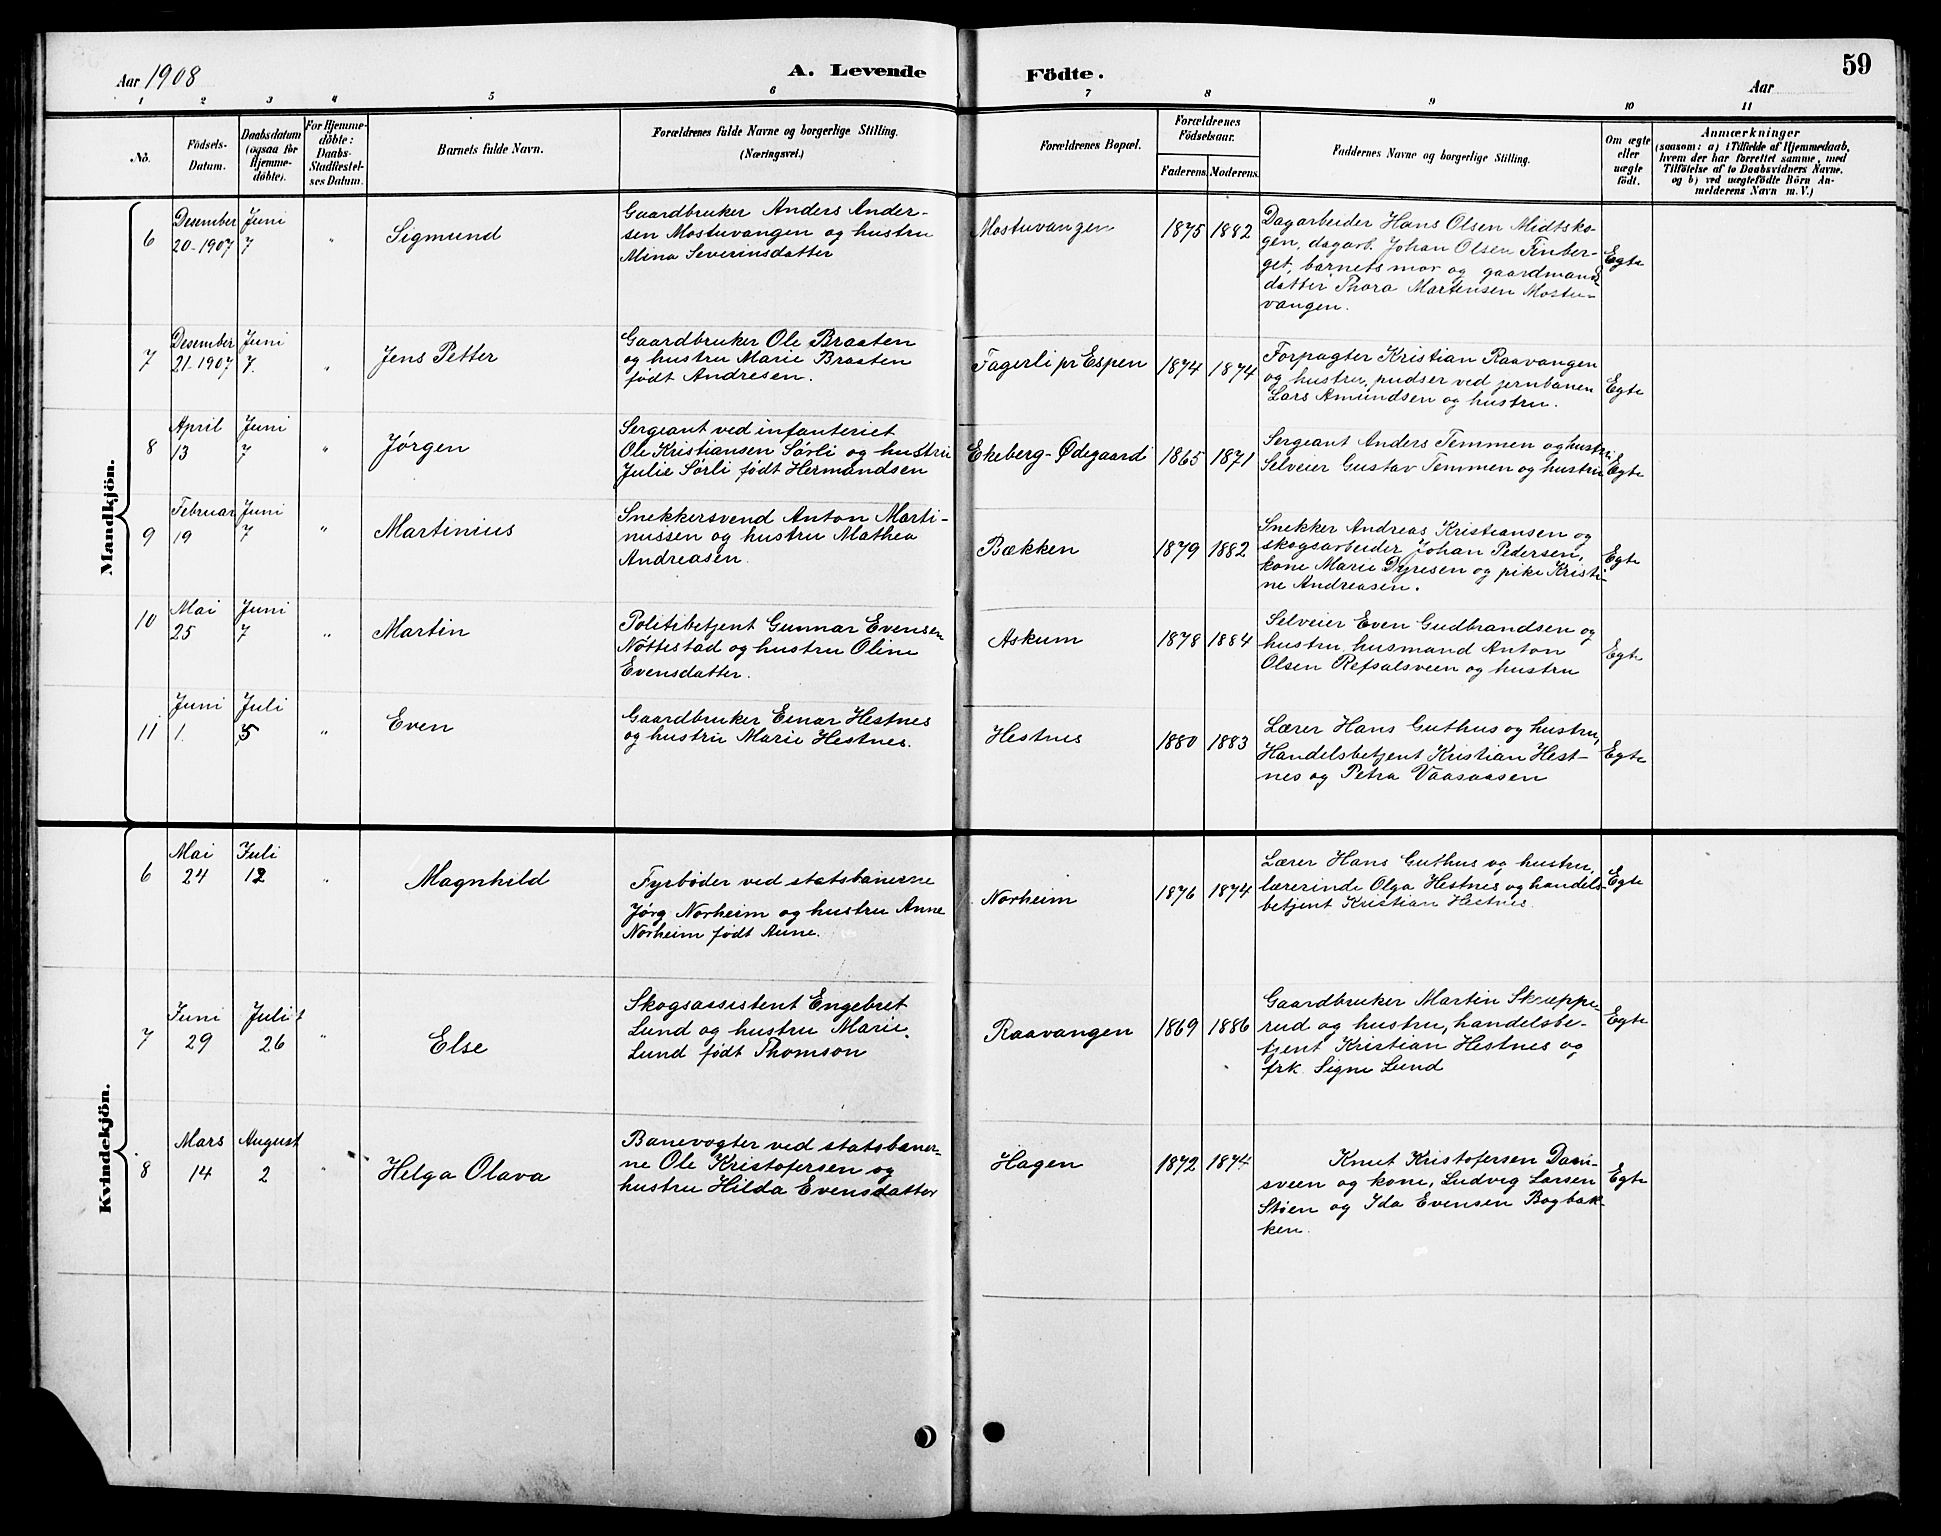 Aar 1908
A. Levende
Födte.
Aar
59
1 2 3 4 5 6 7 8 9 10 11
No.
Födsels-
Datum.
Daabsdatum
(ogsaa for
Hjemme-
döbte).
For Hjemme-
döbte:
Daabs-
Stadfæstel-
ses Datum.
Barnets fulde Navn.
Forældrenes fulde Navne og borgerlige Stilling.
(Næringsvei.)
Forældrenes Bopæl.
Forældrenes
Födselsaar.
Faderens. Moderens.
Faddernes Navne og borgerlige Stilling.
Om ægte
eller
uægte
födt.
Anmærkninger
(saasom: a) i Tilfælde af Hjemmedaab,
hvem der har forrettet samme, med
Tilföielse af to Daabsvidners Navne.
og b) ved uægtefödte Börn An-
melderens Navn m. V.)
Mandkjön.
6
Desember
20-1907
Juni
7
"
Sigmund
Gaardbruker Anders Ander-
sen Mostuvangen og hustru
Mina Severinsdatter
Mostuvangen
1875 1882
Dagarbeider Hans Olsen Midtsko-
gen, dagarb. Johan Olsen Finber-
get, barnets mor og gaardmands-
datter Thora Martensen Mostu-
vangen.
Egte
7
Desember
21-1907
Juni
7.
"
Jens Petter
Gaardbruker Ole Braaten
og hustru Marie Braaten
født Andresen.
Fagerli pr Espen
1874 1874
Forpagter Kristian Raavangen
og hustru, pudser ved jernbanen
Lars Amundsen og hustru.
Egte
8
April
13
Juni
7
"
Jørgen
Sergeant ved infanteriet
Ole Kristiansen Sørli og hustru
Julie Sørli født Hermandsen
Ekeberg-Ødegaard
1865 1871
Sergeant Anders Temmen og hustru
Selveier Gustav Temmen og hustru
Egte
9
Februar
19
Juni
7
"
Martinius
Snekkersvend Anton Marti-
nussen og hustru Mathea
Andreasen
Bækken
1879 1882
Snekker Andreas Kristiansen og
skogsarbeider Johan Pedersen,
kone Marie Dyresen og pike Kristi-
ne Andreasen.
Egte
10
Mai
25
Juni
7
"
Martin
Politibetjent Gunnar Evensen
Nøttestad og hustru Oline
Evensdatter.
Askum
1878 1884
Selveier Even Gudbrandsen og
hustru, husmand Anton
Olsen Refsalsveen og hustru
Egte
11
Juni
1.
Juli
5
"
Even
Gaardbruker Einar Hestnes
og hustru Marie Hestnes.
Hestnes
1880 1883
Lærer Hans Guthus og hustru,
Handelsbetjent Kristian Hest-
nes og Petra Vaasaasen
Egte
Kvindekjön.
6
Mai
24
Juli
12
"
Magnhild
Fyrbøder ved statsbanerne
Jørg Norheim og hustru Anne
Norheim født Aune.
Norheim
1876 1874
Lærer Hans Guthus og hustru,
lærerinde Olga Hestnes og handels-
betjent Kristian Hestnes.
Egte
7
Juni
29
Juli
26
"
Else
Skogsassistent Engebret
Lund og hustru Marie
Lund født Thomson
Raavangen
1869 1886
Gaardbruker Martin Skræppe-
rud og hustru, handelsbe-
tjent Kristian Hestnes og
frk. Signe Lund
Egte
8
Mars
14
August
2
"
Helga Olava
Banevogter ved statsbaner-
ne Ole Kristofersen og
hustru Hilda Evensdatter
Hagen
1872 1874
Knut Kristofersen
sveen og kone, Ludvig Larsen
Støen og Ida Evensen Bagbak-
ken.
Egte